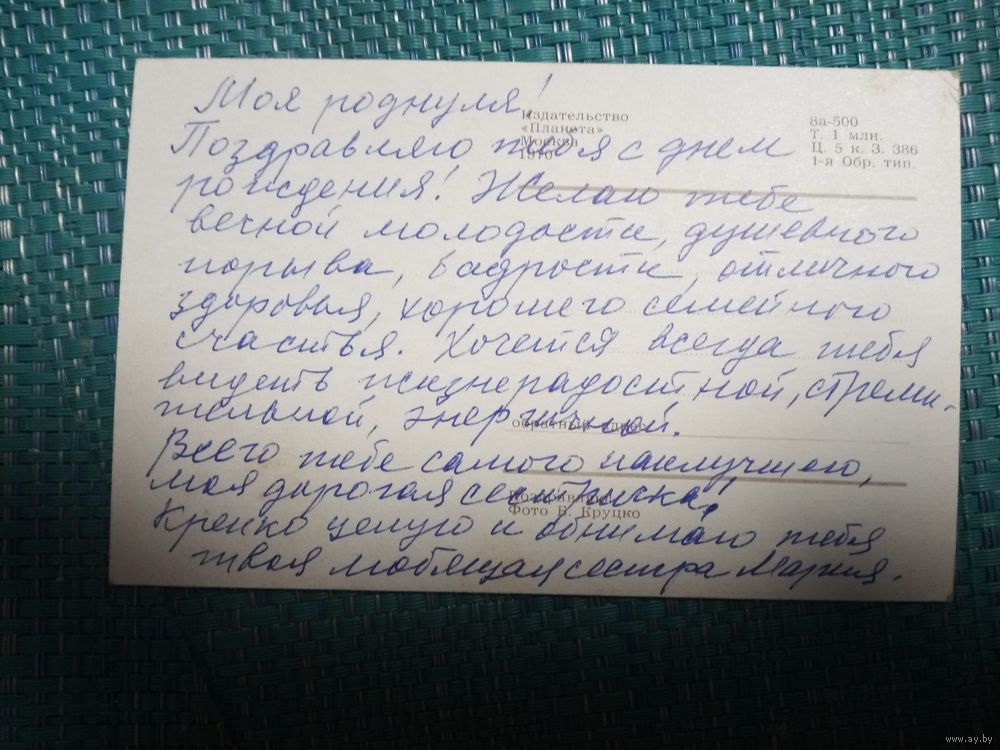 Моя роднуля!
Поздравляю тебя с днем
рождения! Желаю тебе
вечной молодости, душевного
порыва, бодрости, отличного
здоровья, хорошего семейного
счастья. Хочется всегда тебя
видеть жизнерадостной, стреми-
тельной, энергичной.
Всего тебе самого наилучшего,
моя дорогая сестричка!
Крепко целую и обнимаю тебя
твоя любящая сестра Мария.
Издательство
«Планета»
Москва
1970
8а-500
Т. 1 млн.
Ц. 5 к. З. 386
1-я Обр. тип.
обратный адрес
Поздравляю
Фото Б. Круцко
www.ay.by